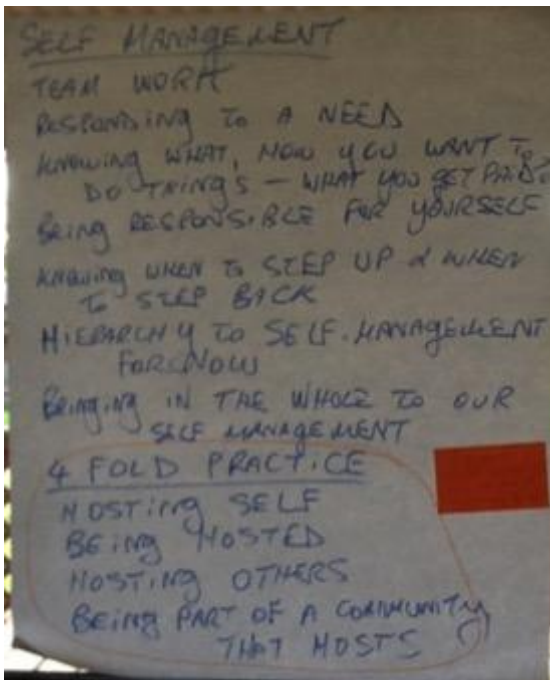 SELF MANAGEMENT
TEAM WORK
RESPONDING TO A NEED
KNOWING WHAT, HOW YOU WANT TO
DO THINGS – WHAT YOU GET PAID
BEING RESPONSIBLE FOR YOURSELF
KNOWING WHEN TO STEP UP & WHEN
TO STEP BACK
HIERARCHY TO SELF-MANAGEMENT
FOR NOW
BRINGING IN THE WHOLE TO OUR
SELF MANAGEMENT
4 FOLD PRACTICE
HOSTING SELF
BEING HOSTED
HOSTING OTHERS
BEING PART OF A COMMUNITY
THAT HOSTS